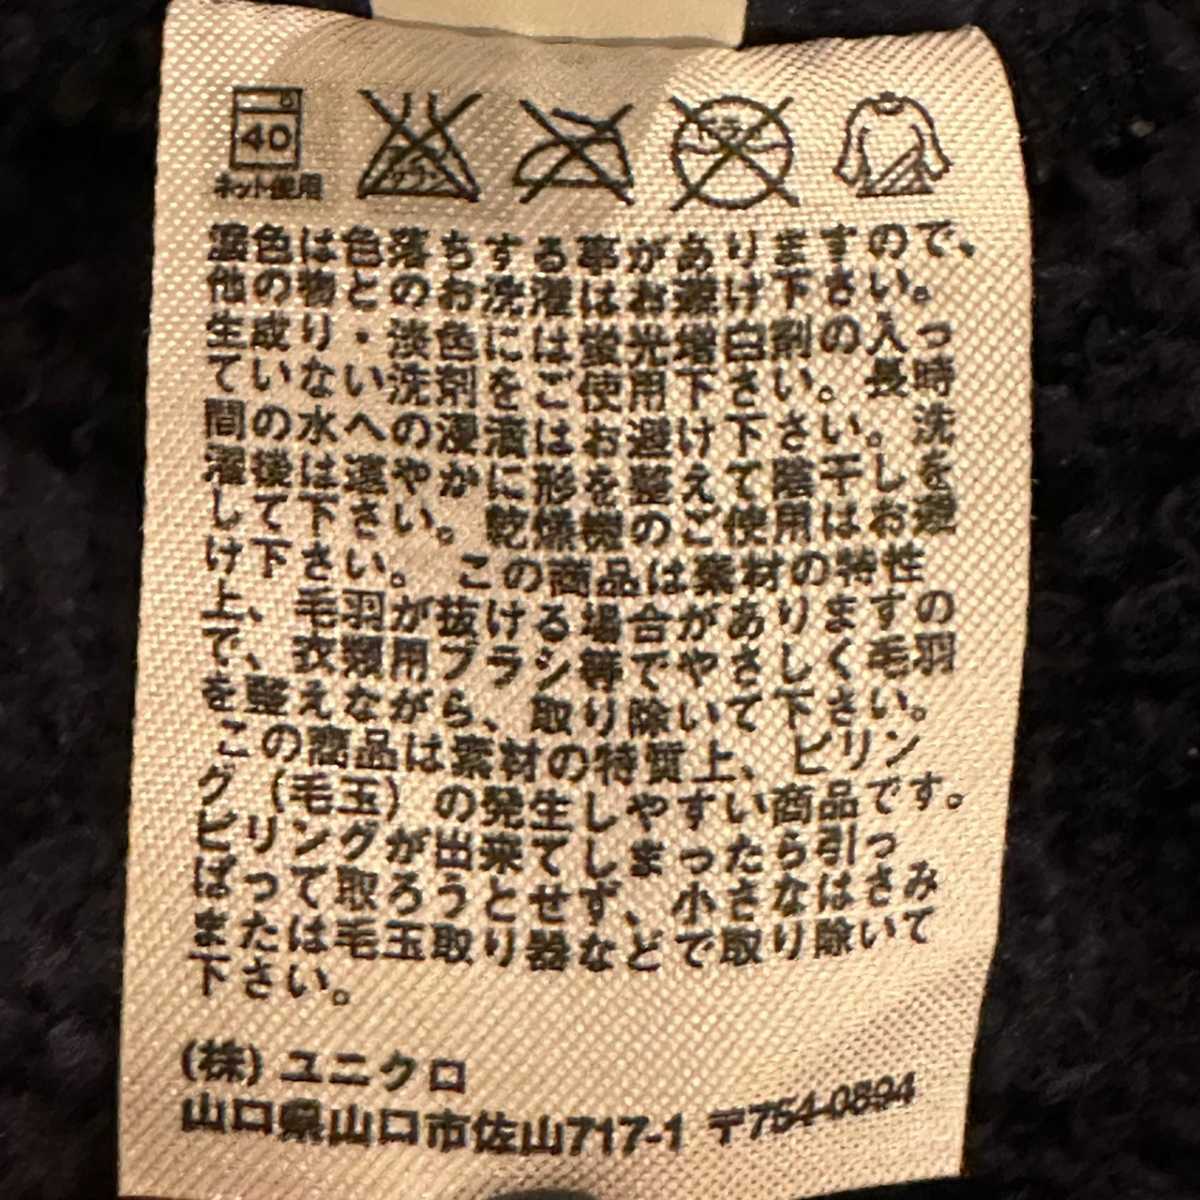 40
ネット使用
濃色は色落ちする事がありますので、
他の物とのお洗濯はお避け下さい。
生成り・淡色には蛍光増白剤の入っ
ていない洗剤をご使用下さい。長時
間の水への浸漬はお避け下さい。洗
濯後は速やかに形を整えて陰干しを
して下さい。乾燥機のご使用はお避
け下さい。この商品は素材の特性
上、毛羽が抜ける場合がありますの
で、衣類用ブラシ等でやさしく毛羽
を整えながら、取り除いて下さい。
この商品は素材の特質上、ピリン
グ(毛玉)の発生しやすい商品です。
ピリングが出来てしまったら引っ
ぱって取ろうとせず、小さなはさみ
または毛玉取り器などで取り除いて
下さい。
(株)ユニクロ
山口県山口市佐山717-1 〒754-0894